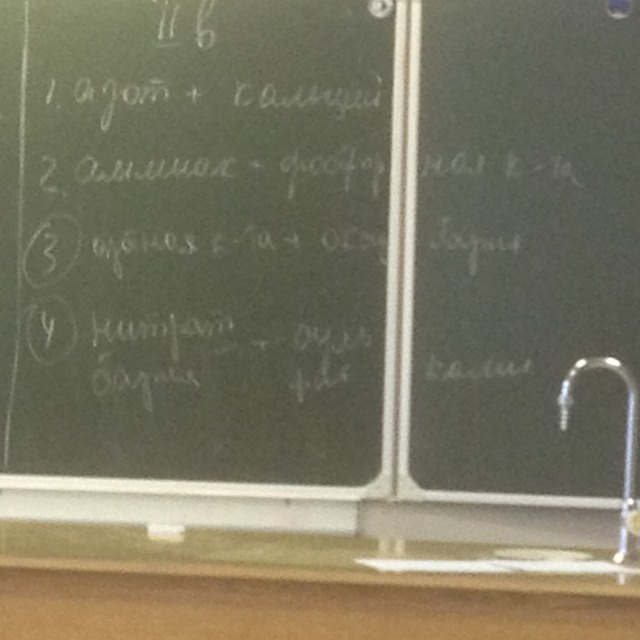 II в
1. азот + кальций
2. аммиак + фосфорная к-та
3 азотная к-та + оксид бария
4 нитрат бария + суль фат калия